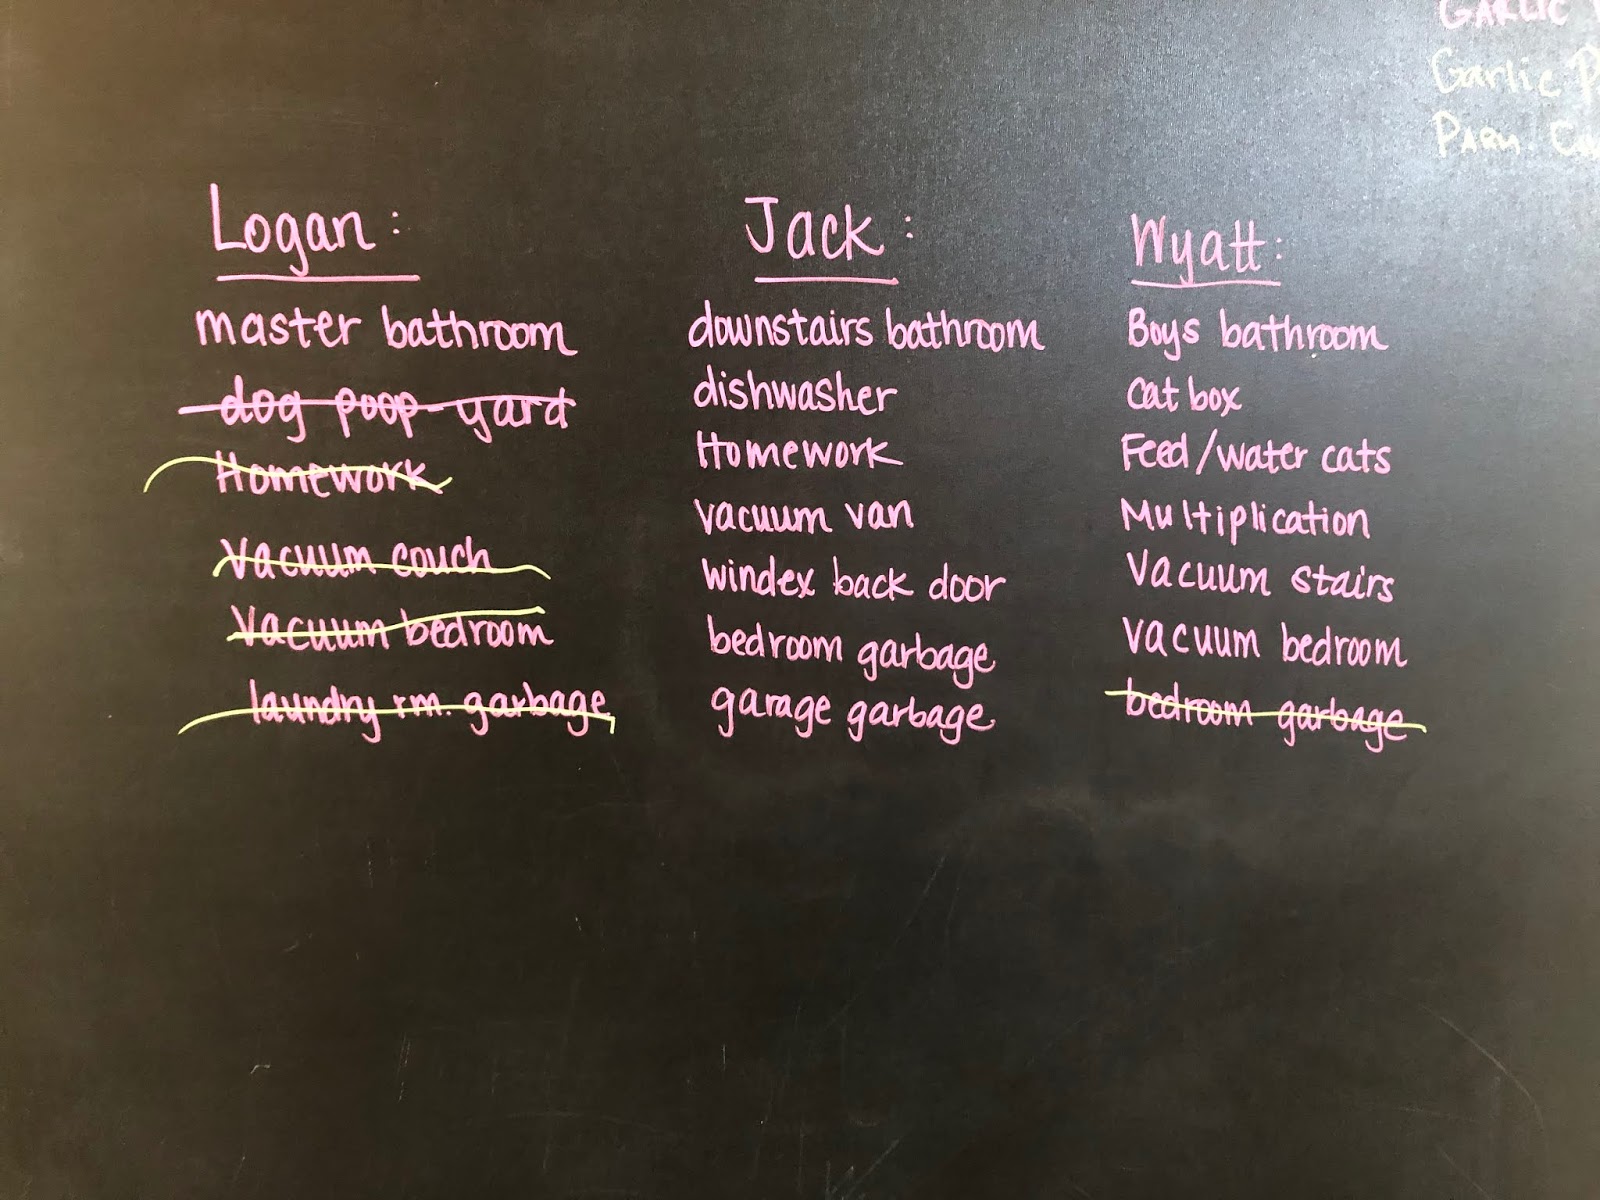 GARLIC
Garlic
PARM
Logan:
master bathroom
dog poop-yard
Homework
Vacuum couch
Vacuum bedroom
laundry rm. garbage
Jack:
downstairs bathroom
dishwasher
Homework
vacuum van
windex back door
bedroom garbage
garage garbage
Wyatt:
Boys bathroom
cat box
Feed/water cats
Multiplication
Vacuum stairs
Vacuum bedroom
bedroom garbage